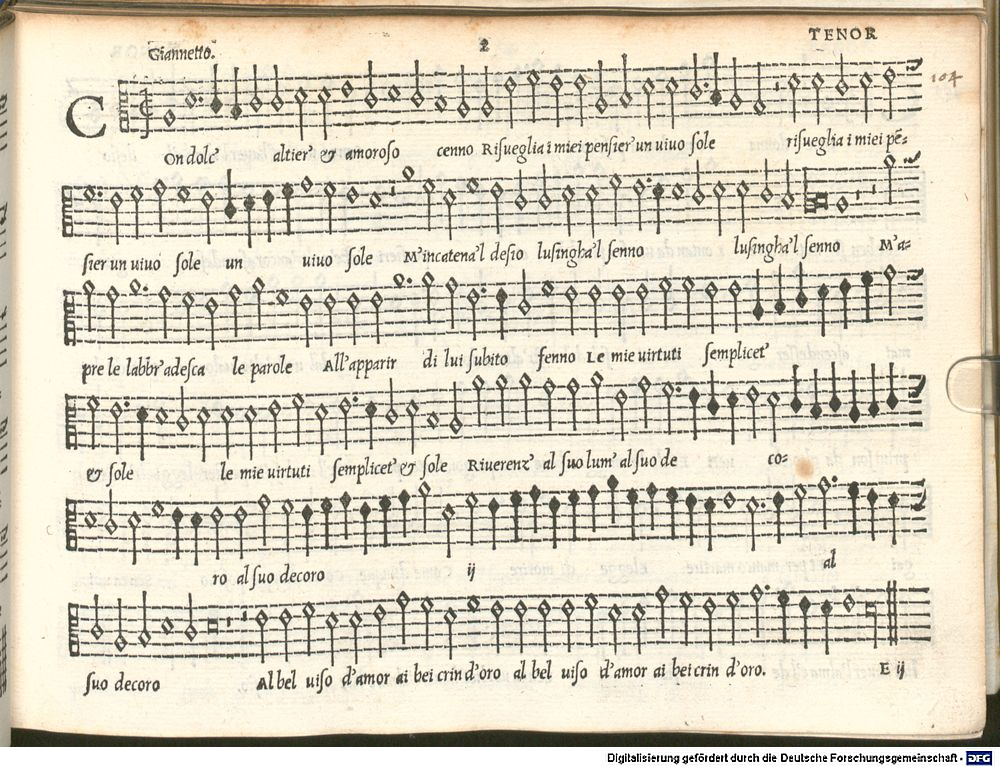 Giannetto. 2 TENOR
104
COn dolc' altier' & amoroso cenno Risueglia i miei pensier' un viuo sole risueglia i miei pẽ-
sier un viuo sole un viuo sole M'incatena'l desio lusingha'l senno lusingha'l senno M'a-
pre le labbr' adesca le parole All'apparir di lui subito fenno Le mie uirtuti semplicet'
& sole le mie uirtuti semplicet' & sole Riuerenz' al suo lum' al suo de co-
ro al suo decoro ij al
suo decoro Al bel uiso d'amor ai bei crin d'oro al bel uiso d'amor ai bei crin d'oro.
E ij
Digitalisierung gefördert durch die Deutsche Forschungsgemeinschaft - DFG